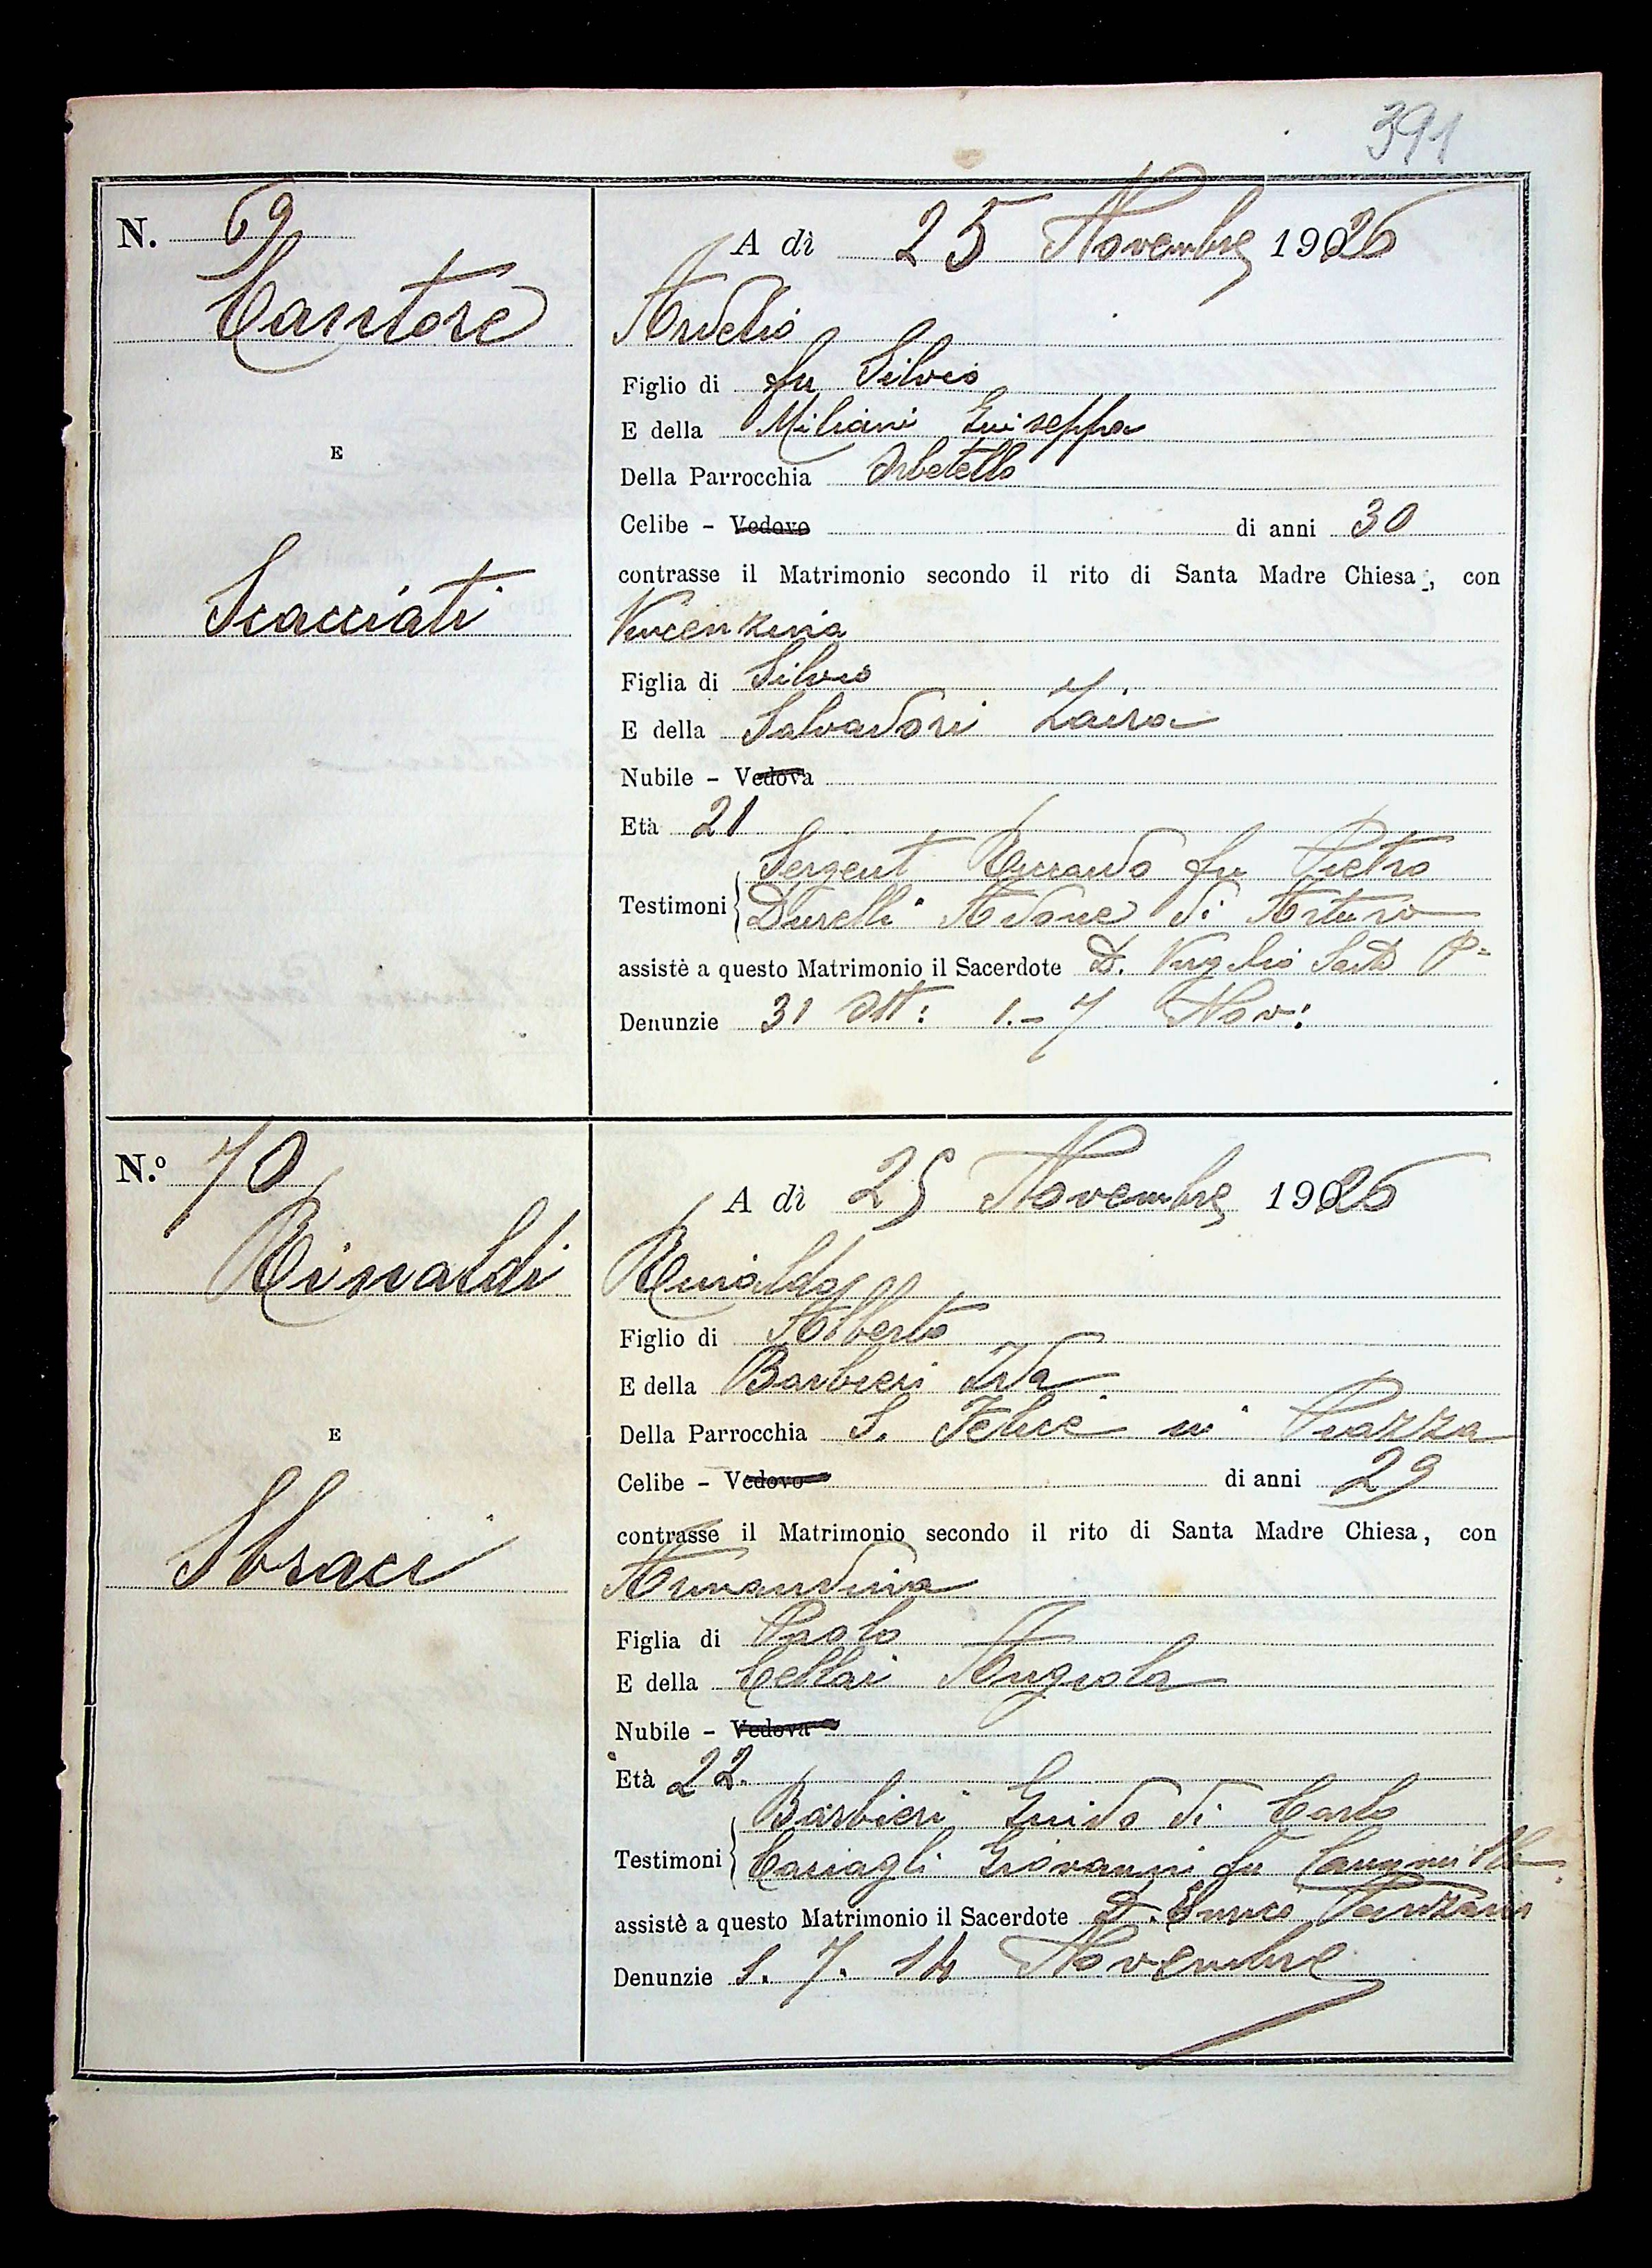 391
N. 69
A dì 25 Novembre 1926
Cantore
Ardelio
Figlio di fu Silvio
E della Miliani Giuseppa
E
Della Parrocchia Orbetello
Celibe - Vedovo di anni 30
contrasse il Matrimonio secondo il rito di Santa Madre Chiesa, con
Scacciati
Vincenzina
Figlia di Silvio
E della Salvadori Zaira
Nubile - Vedova
Età 21
Sergent fu Pietro
Testimoni Durelli Adone di Arturo
assistè a questo Matrimonio il Sacerdote D. Virgilio P.
Denunzie 31 Ott: 1.- 7 Nov:
N.º 70
A dì 25 Novembre 1926
Rinaldi
Rinaldo
Figlio di Alberto
E della Barbieri Ida
Della Parrocchia S. Felice in Piazza
E
Celibe - Vedovo di anni 29
contrasse il Matrimonio secondo il rito di Santa Madre Chiesa, con
Sbraci
Armandina
Figlia di Paolo
E della Cellai Angiola
Nubile - Vedova
Età 22.
Barbieri Guido di Carlo
Testimoni Casiagli Giovanni fu
assistè a questo Matrimonio il Sacerdote D. Enrico
Denunzie 1. 7. 14 Novembre